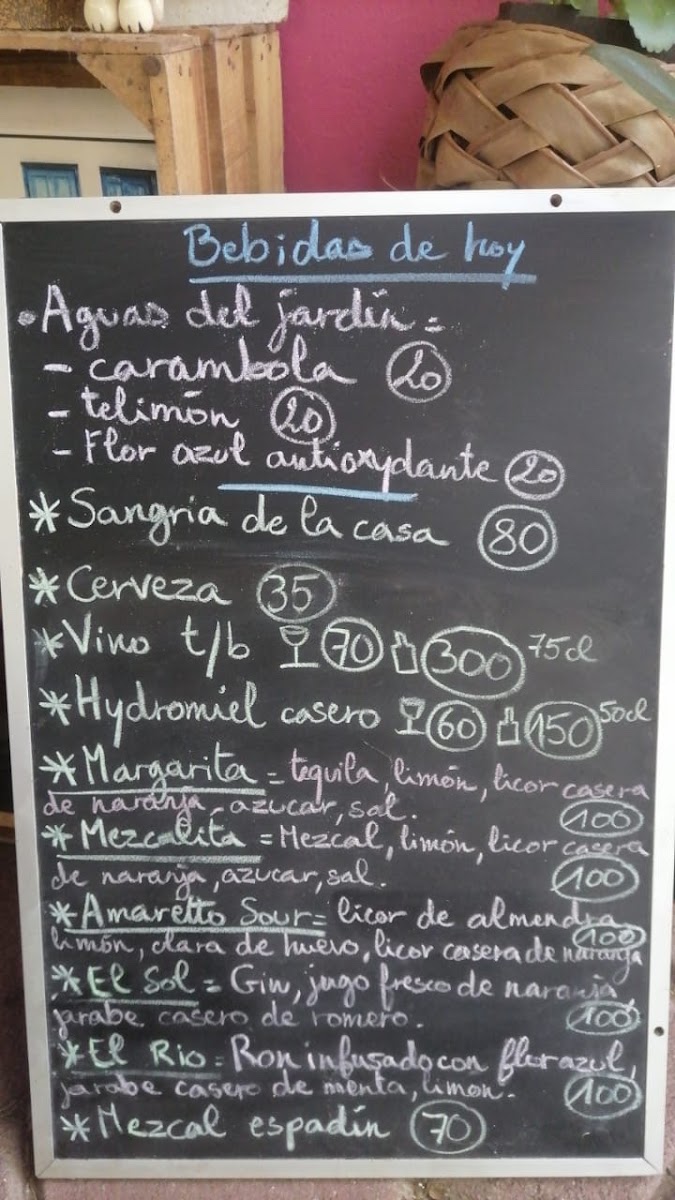 Bebidas de hoy
• Aguas del jardín =
- carambola 20
- telimón 20
- Flor azul antioxydante 20
* Sangria de la casa 80
* Cerveza 35
* Vino t/b 70 300 75cl
* Hydromiel casero 60 150 50cl
* Margarita = tequila, limón, licor casera
de naranja, azucar, sal. 100
* Mezcalita = Mezcal, limón, licor casera
de naranja, azucar, sal. 100
* Amaretto Sour = licor de almendra,
limón, clara de huevo, licor casera de naranja 100
* El Sol = Gin, jugo fresco de naranja,
jarabe casero de romero. 100
* El Rio = Ron infusado con flor azul,
jarabe casero de menta, limon. 100
* Mezcal espadín 70